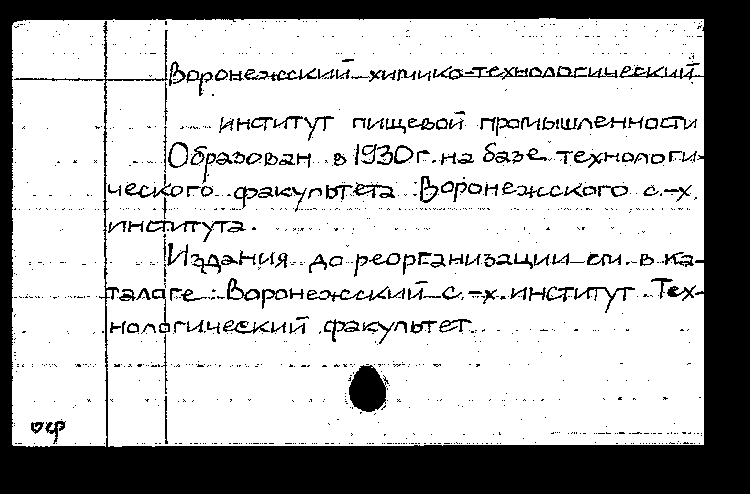 Воронежский химико-технологический
институт пищевой промышленности
Образован в 1930 г. на базе технологи-
ческого факультета Воронежского с.-х.
института.
Издания до реорганизации см. в ка-
талоге: Воронежский с.-х. институт. Тех-
нологический факультет.
оср